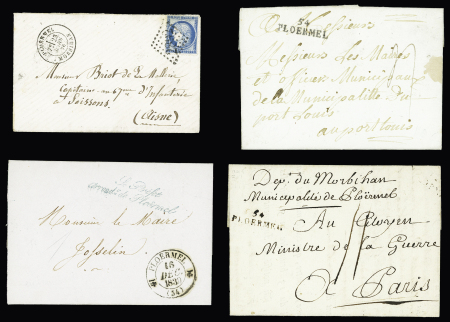 PLOERMEL
Monsieur Briot de la Mallerie
Capitaine au 67me d'Infanterie
à Soissons
(Aisne)
54
PLOERMEL
Messieurs
Messieurs Les Maires
et officiers Municipaux
de la Municipalité du
port Louis
au port Louis
Le Préfet
Monsieur le Maire
Josselin
PLOERMEL
16
DEC
(54)
Dept. du Morbihan
Municipalité de Ploërmel
54
PLOERMEL
Au Citoyen
Ministre de la Guerre
A Paris